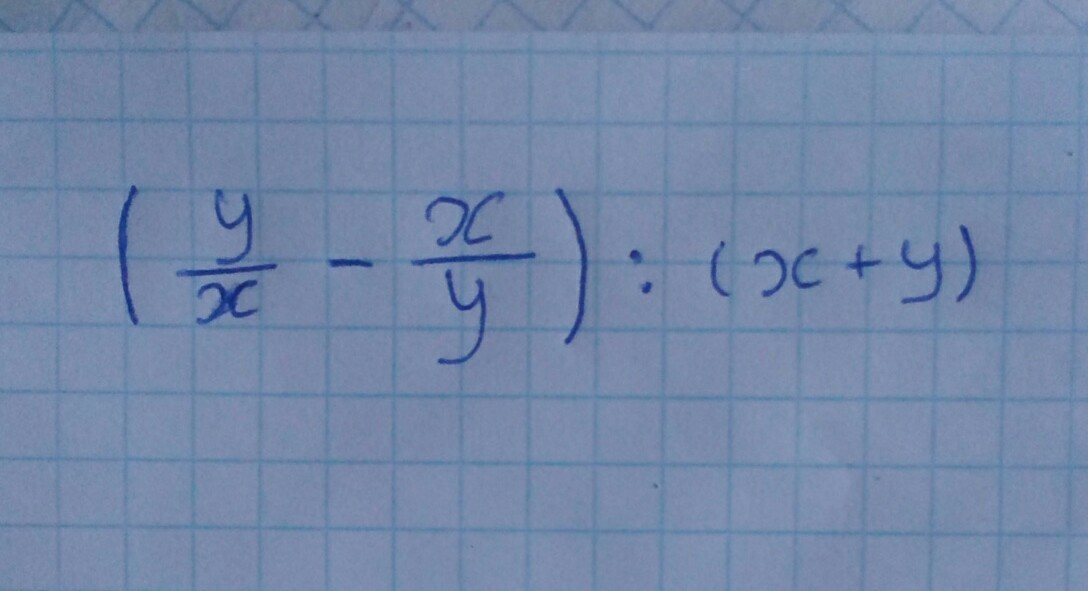 (y/x - x/y) : (x + y)